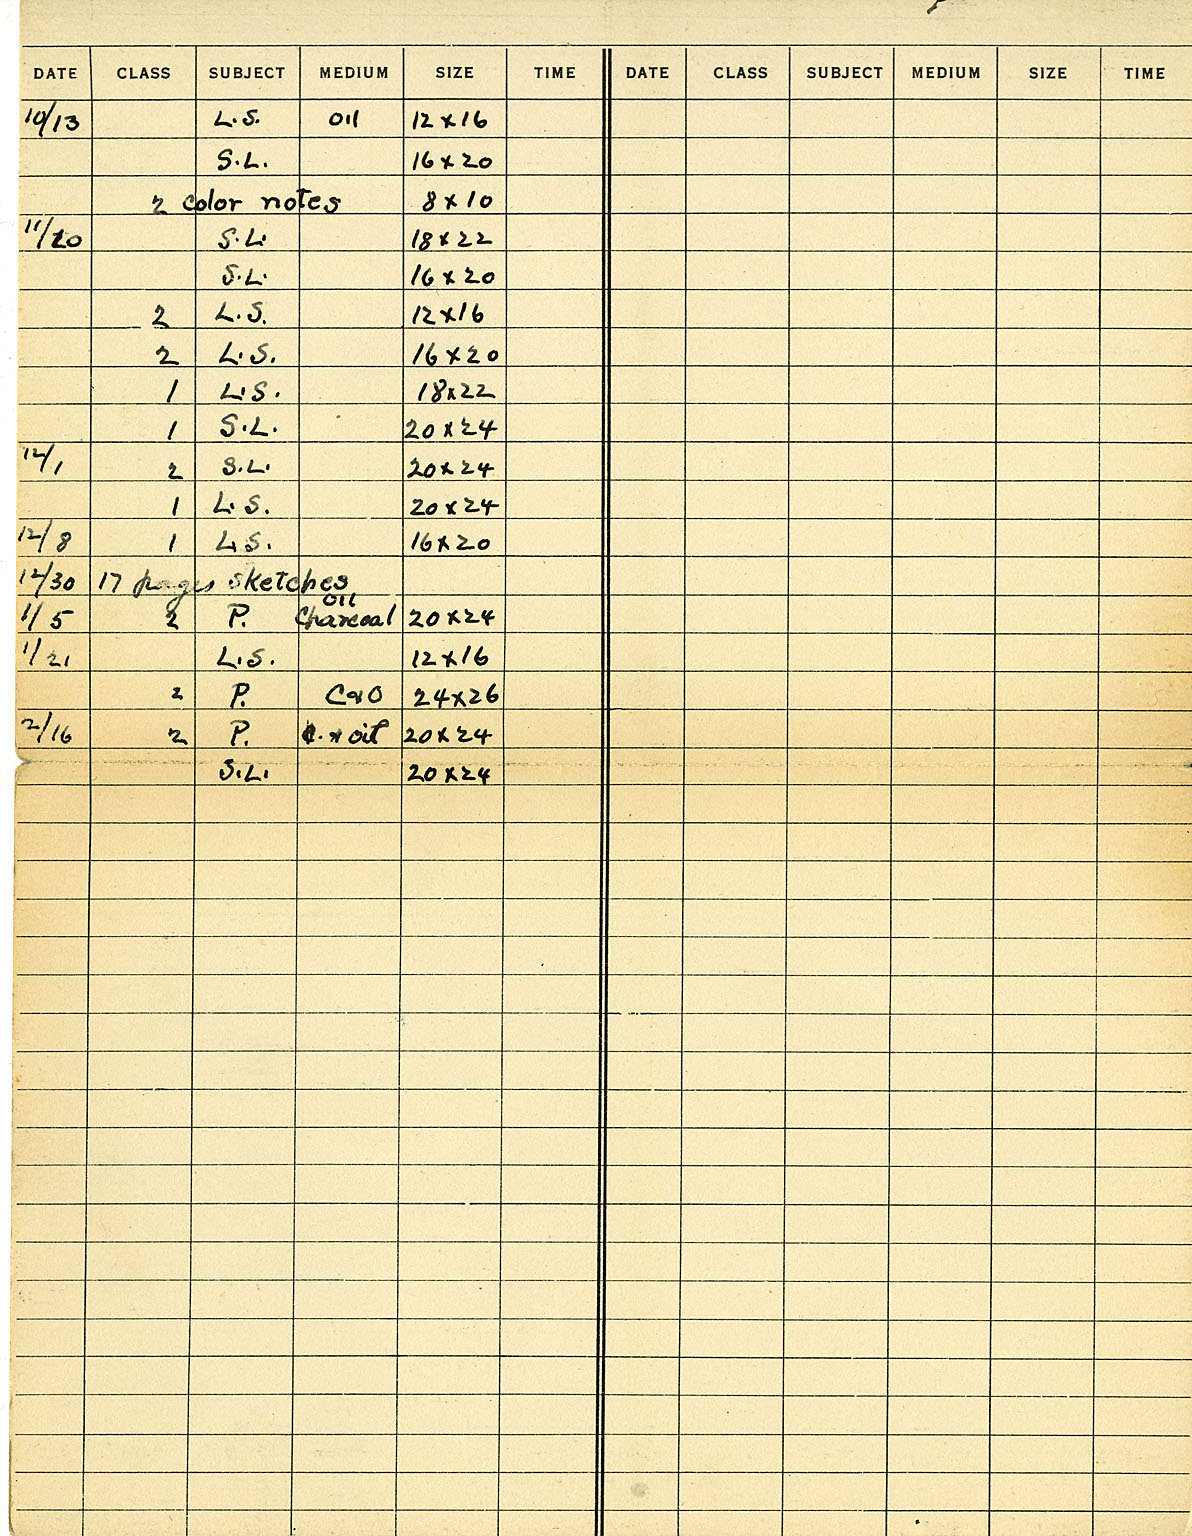 DATE CLASS SUBJECT MEDIUM SIZE TIME DATE CLASS SUBJECT MEDIUM SIZE TIME
10/13 L.S. oil 12 x 16
S.L. 16 x 20
2 color notes 8 x 10
11/20 S.L. 18 x 22
S.L. 16 x 20
2 L.S. 12 x 16
2 L.S. 16 x 20
1 L.S. 18 x 22
1 S.L. 20 x 24
12/1 2 S.L. 20 x 24
1 L.S. 20 x 24
12/8 1 L.S. 16 x 20
12/30 17 pages sketches
oil
1/5 2 P. Charcoal 20 x 24
1/21 L.S. 12 x 16
2 P. C & O 24 x 26
2/16 2 P. C. & oil 20 x 24
S.L. 20 x 24